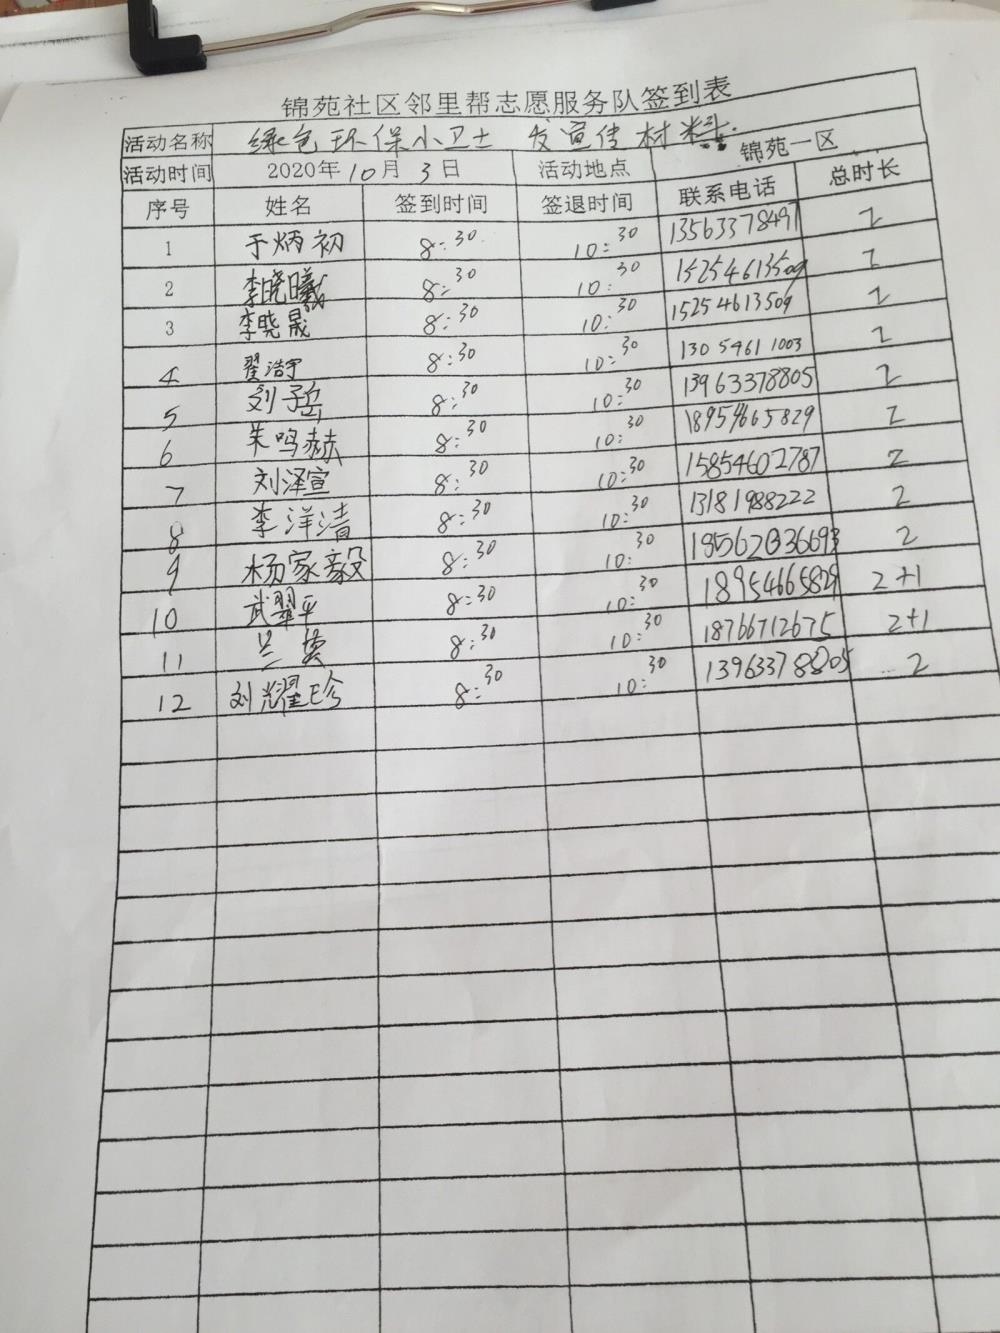 锦苑社区邻里帮志愿服务队签到表
活动名称 绿色环保小卫士 发宣传材料
活动时间 2020年10月3日 活动地点 锦苑一区
序号 姓名 签到时间 签退时间 联系电话 总时长
1 于炳初 8:30 10:30 13563378497 2
2 李晓曦 8:30 10:30 15254613509 2
3 李晓晟 8:30 10:30 15254613509 2
4 翟浩宇 8:30 10:30 13054611003 2
5 刘子岳 8:30 10:30 13963378805 2
6 朱鸣赫 8:30 10:30 18954665829 2
7 刘泽宣 8:30 10:30 15854602787 2
8 李洋清 8:30 10:30 13181988222 2
9 杨家毅 8:30 10:30 2
10 武翠平 8:30 10:30 18954665829 2+1
11 兰英 8:30 10:30 18766712675 2+1
12 刘耀珍 8:30 10:30 13963378805 2